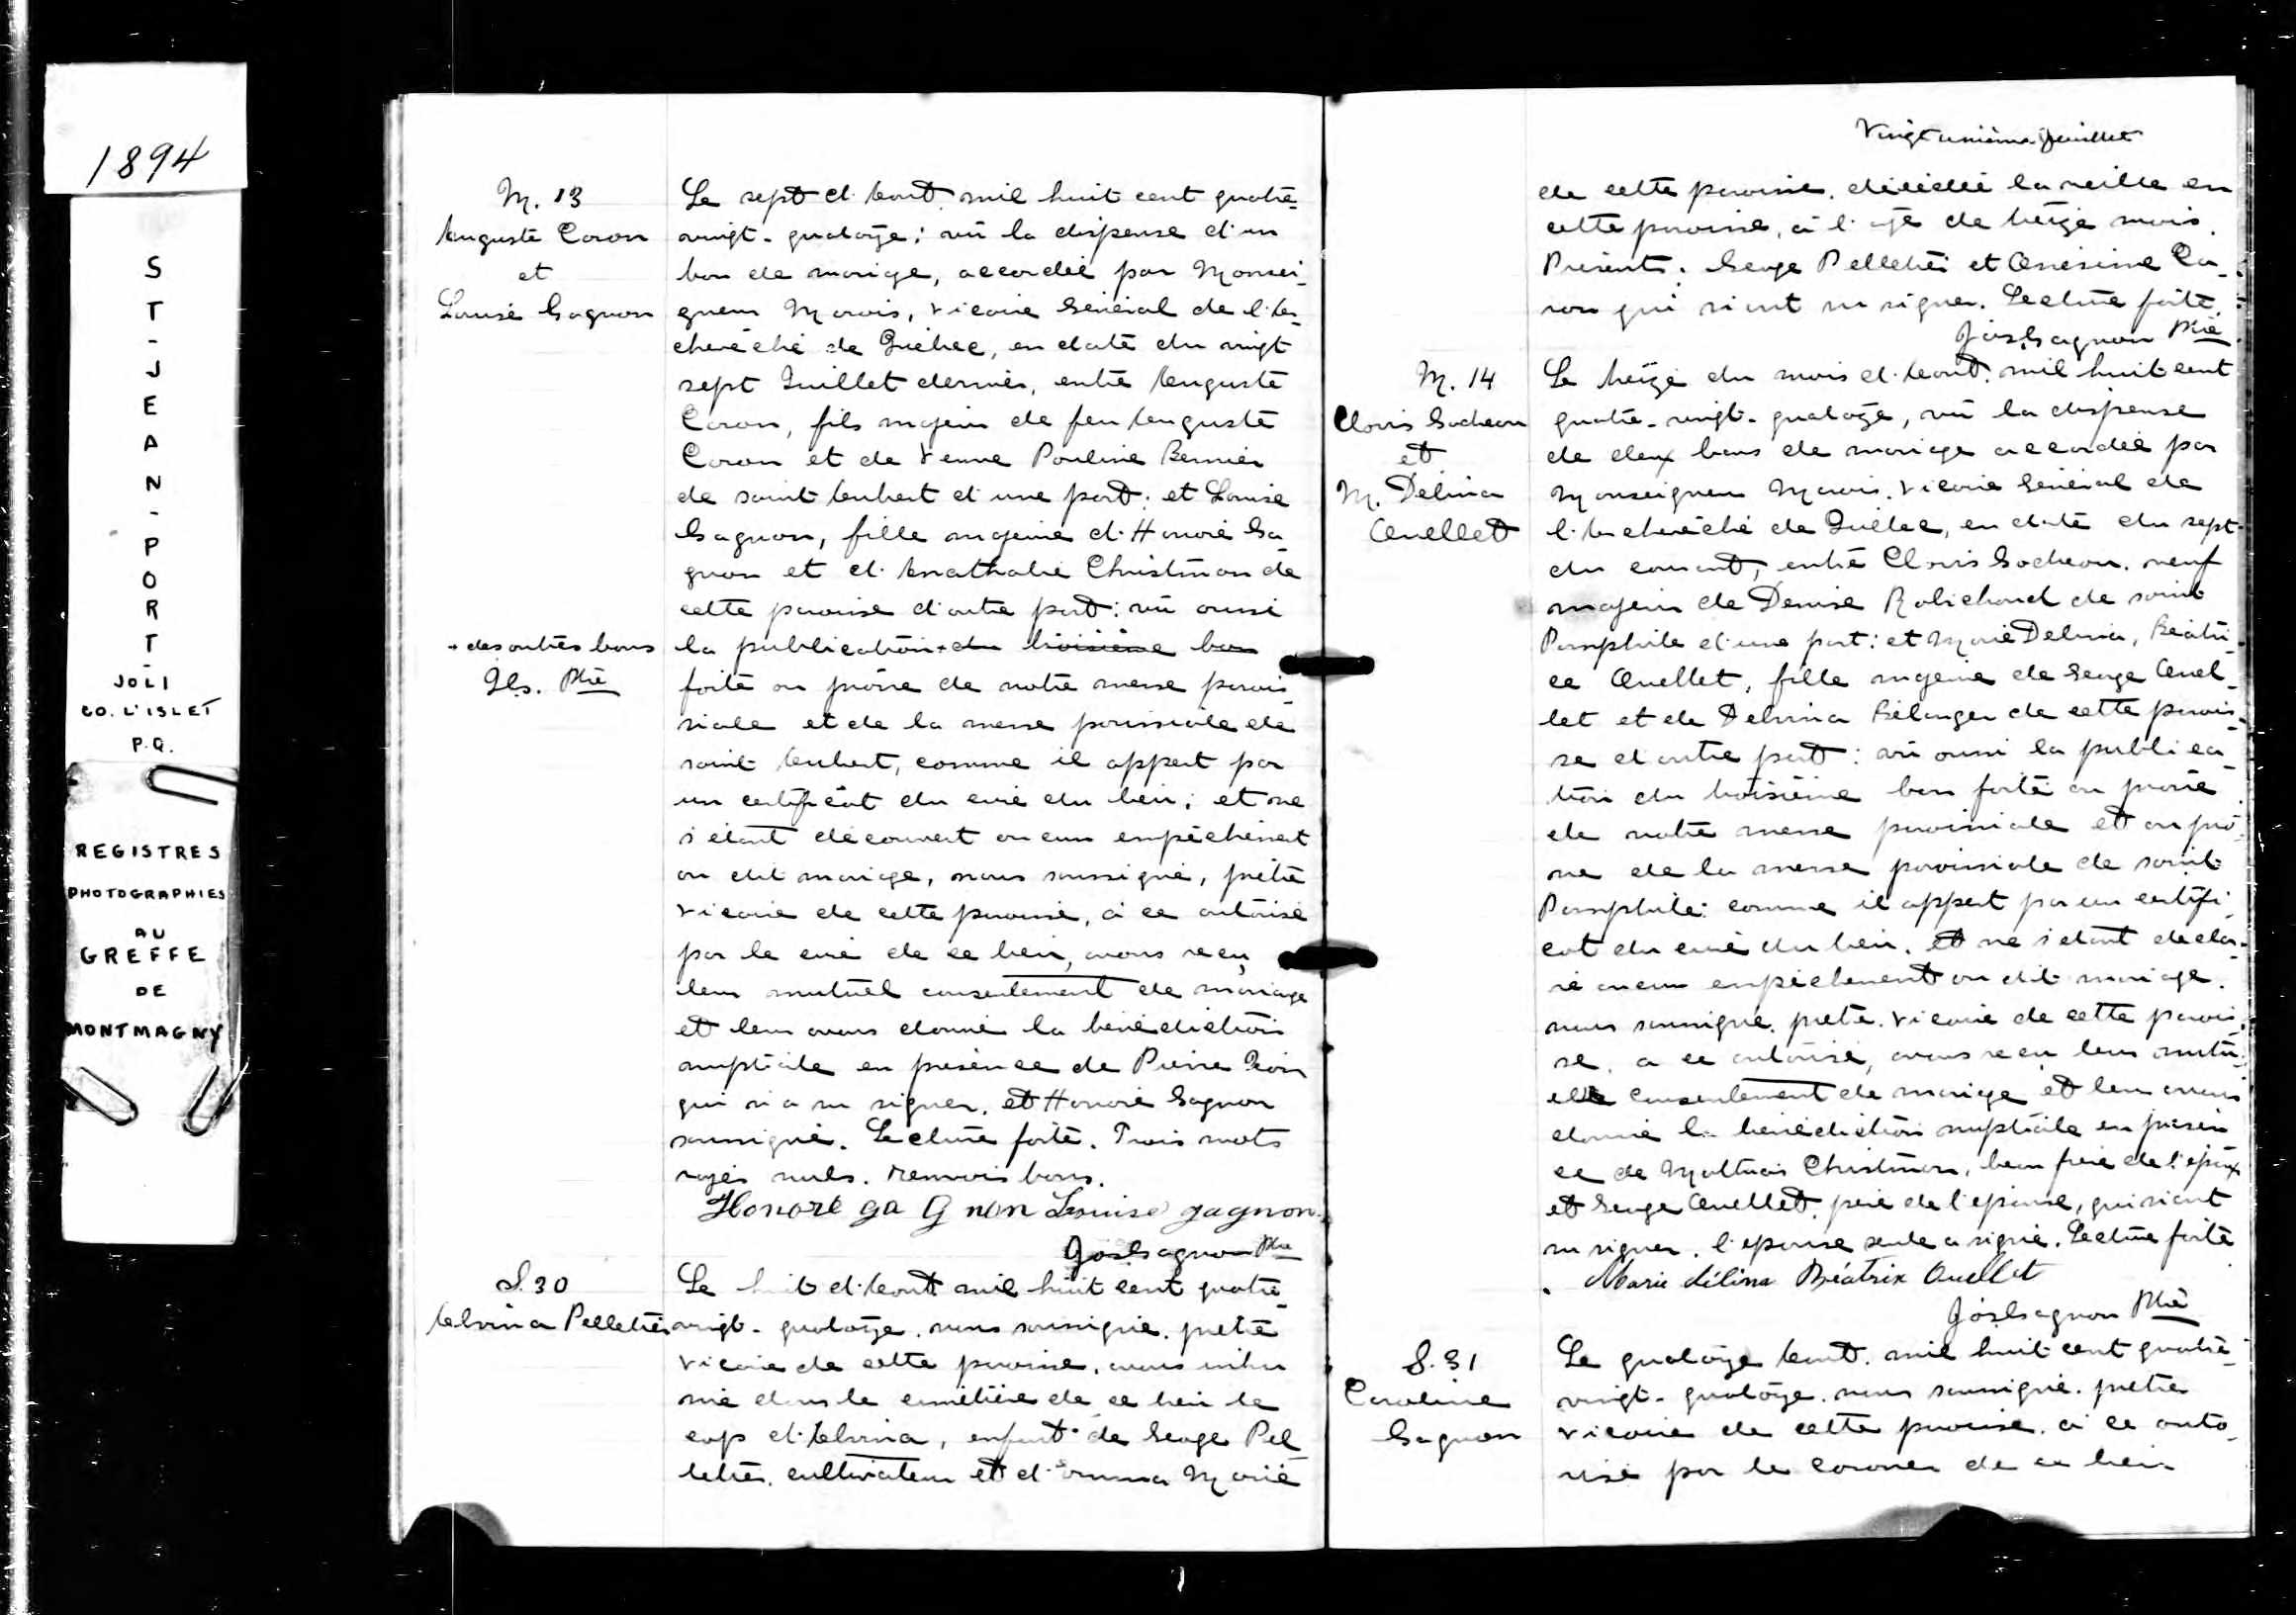 1894
ST-JEAN-PORT-
JOLI
CO. L'ISLET
P.Q.
REGISTRES
PHOTOGRAPHIES
AU
GREFFE
DE
MONTMAGNY
M. 13
Auguste Caron
et
Louise Gagnon
Le sept d'Août mil huit cent quatre-
vingt-quatorze; vû la dispense d'un
ban de mariage, accordée par Monsei-
gneur Marois, Vicaire Général de l'Ar-
chevêché de Québec, en date du vingt
sept Juillet dernier, entre Auguste
Caron, fils majeur de feu Auguste
Caron et de Veuve Pauline Bernier
de saint Aubert d'une part; et Louise
Gagnon, fille majeure d'Honoré Ga-
gnon et d'Anathalie Christman de
cette paroisse d'autre part; vû aussi
+ des autres bans
J.G. Ptre
la publication + du troisième ban
faite au prône de notre messe parois-
siale et de la messe paroissiale de
saint Aubert, comme il appert par
un certificat du curé du lieu; et ne
s'étant découvert aucun empêchement
au dit mariage, nous soussigné, prêtre
vicaire de cette paroisse, à ce autorisé
par le curé de ce lieu, avons reçu
leur mutuel consentement de mariage
et leur avons donné la bénédiction
nuptiale en présence de Pierre
qui n'a su signer, et Honoré Gagnon
soussigné. Lecture faite. Trois mots
rayés nuls. Renvois bons.
Honoré gaGnon Louise gagnon
Jos. Gagnon Ptre
S. 30
Alvina Pelletier
Le huit d'Août mil huit cent quatre-
vingt-quatorze, nous soussigné, prêtre
vicaire de cette paroisse, avons inhu-
mé dans le cimetière de ce lieu le
corps d'Alvina, enfant de George Pel-
letier, cultivateur et d'Emma Marie
Vingt unième Juillet
de cette paroisse, décédée la veille en
cette paroisse, à l'age de treize mois.
Présents: George Pelletier et Onésime Ca-
ron qui n'ont su signer. Lecture faite.
Jos. Gagnon Ptre
M. 14
Clovis Gocheon
et
M. Delina
Ouellet
Le treize du mois d'Août mil huit cent
quatre-vingt-quatorze, vû la dispense
de deux bans de mariage accordée par
Monseigneur Marois, Vicaire Général de
l'Archevêché de Québec, en date du sept
du courant, entre Clovis Gocheon, veuf
majeur de Denise Robichaud de saint
Pamphile d'une part; et Marie Delina, Béatri-
ce Ouellet, fille majeure de George Ouel-
let et de Delvina Bélanger de cette parois-
se d'autre part; vû aussi la publica-
tion du troisième ban faite au prône
de notre messe paroissiale et au prô-
ne de la messe paroissiale de saint
Pamphile comme il appert par un certifi-
cat du curé du lieu, et ne s'étant décla-
ré aucun empêchement au dit mariage,
nous soussigné, prêtre, vicaire de cette parois-
se, à ce autorisé, avons reçu leur mutu-
el consentement de mariage et leur avons
donné la bénédiction nuptiale en présen-
ce de Christman, beau frère de l'époux
et George Ouellet, père de l'épouse, qui n'ont
su signer. l'épouse seule a signé. Lecture faite
Marie Délina Béatrix Ouellet
Jos. Gagnon Ptre
S. 31
Caroline
Gagnon
Le quatorze Août, mil huit cent quatre-
vingt-quatorze, nous soussigné, prêtre
vicaire de cette paroisse, à ce auto-
risé par le coroner de ce lieu